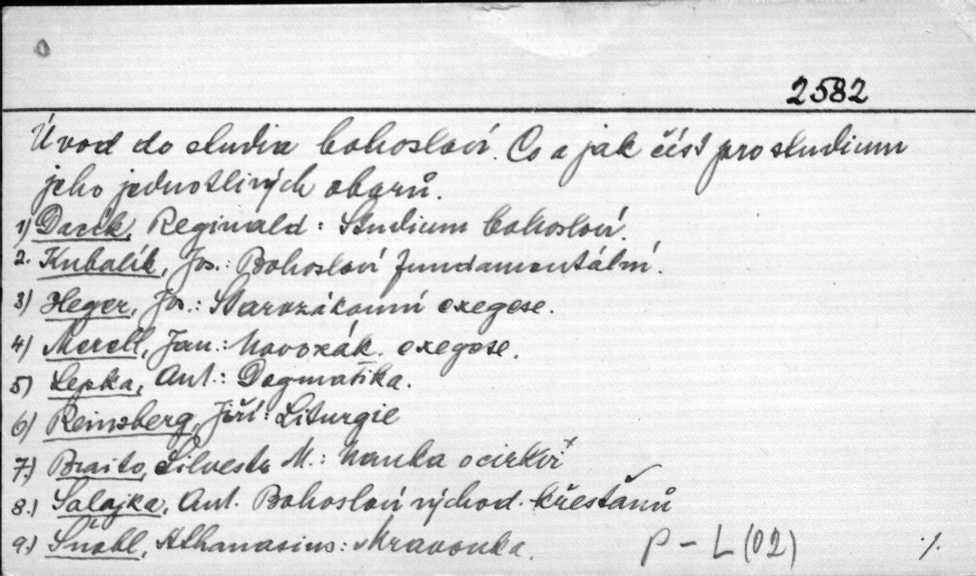 2582
Úvod do studia bohosloví. Co a jak číst pro studium
jeho jednotlivých oborů.
1) Dacík, Reginald: Studium bohosloví.
2. Kubalík, Jos.: Bohosloví fundamentální.
3) Heger, Jos.: Starozákonní exegese.
4) Merell, Jan.: Novozák. exegese.
5) Lepka, Ant.: Dogmatika.
6) Reinsberg, Jiří: Liturgie
7) Braito, Silvestr M.: Nauka o církvi
8.) Salajka, Ant. Bohosloví východ. křesťanů
9.) Šnobl, Athanasius: Mravouka.
P - L (02) ·/.